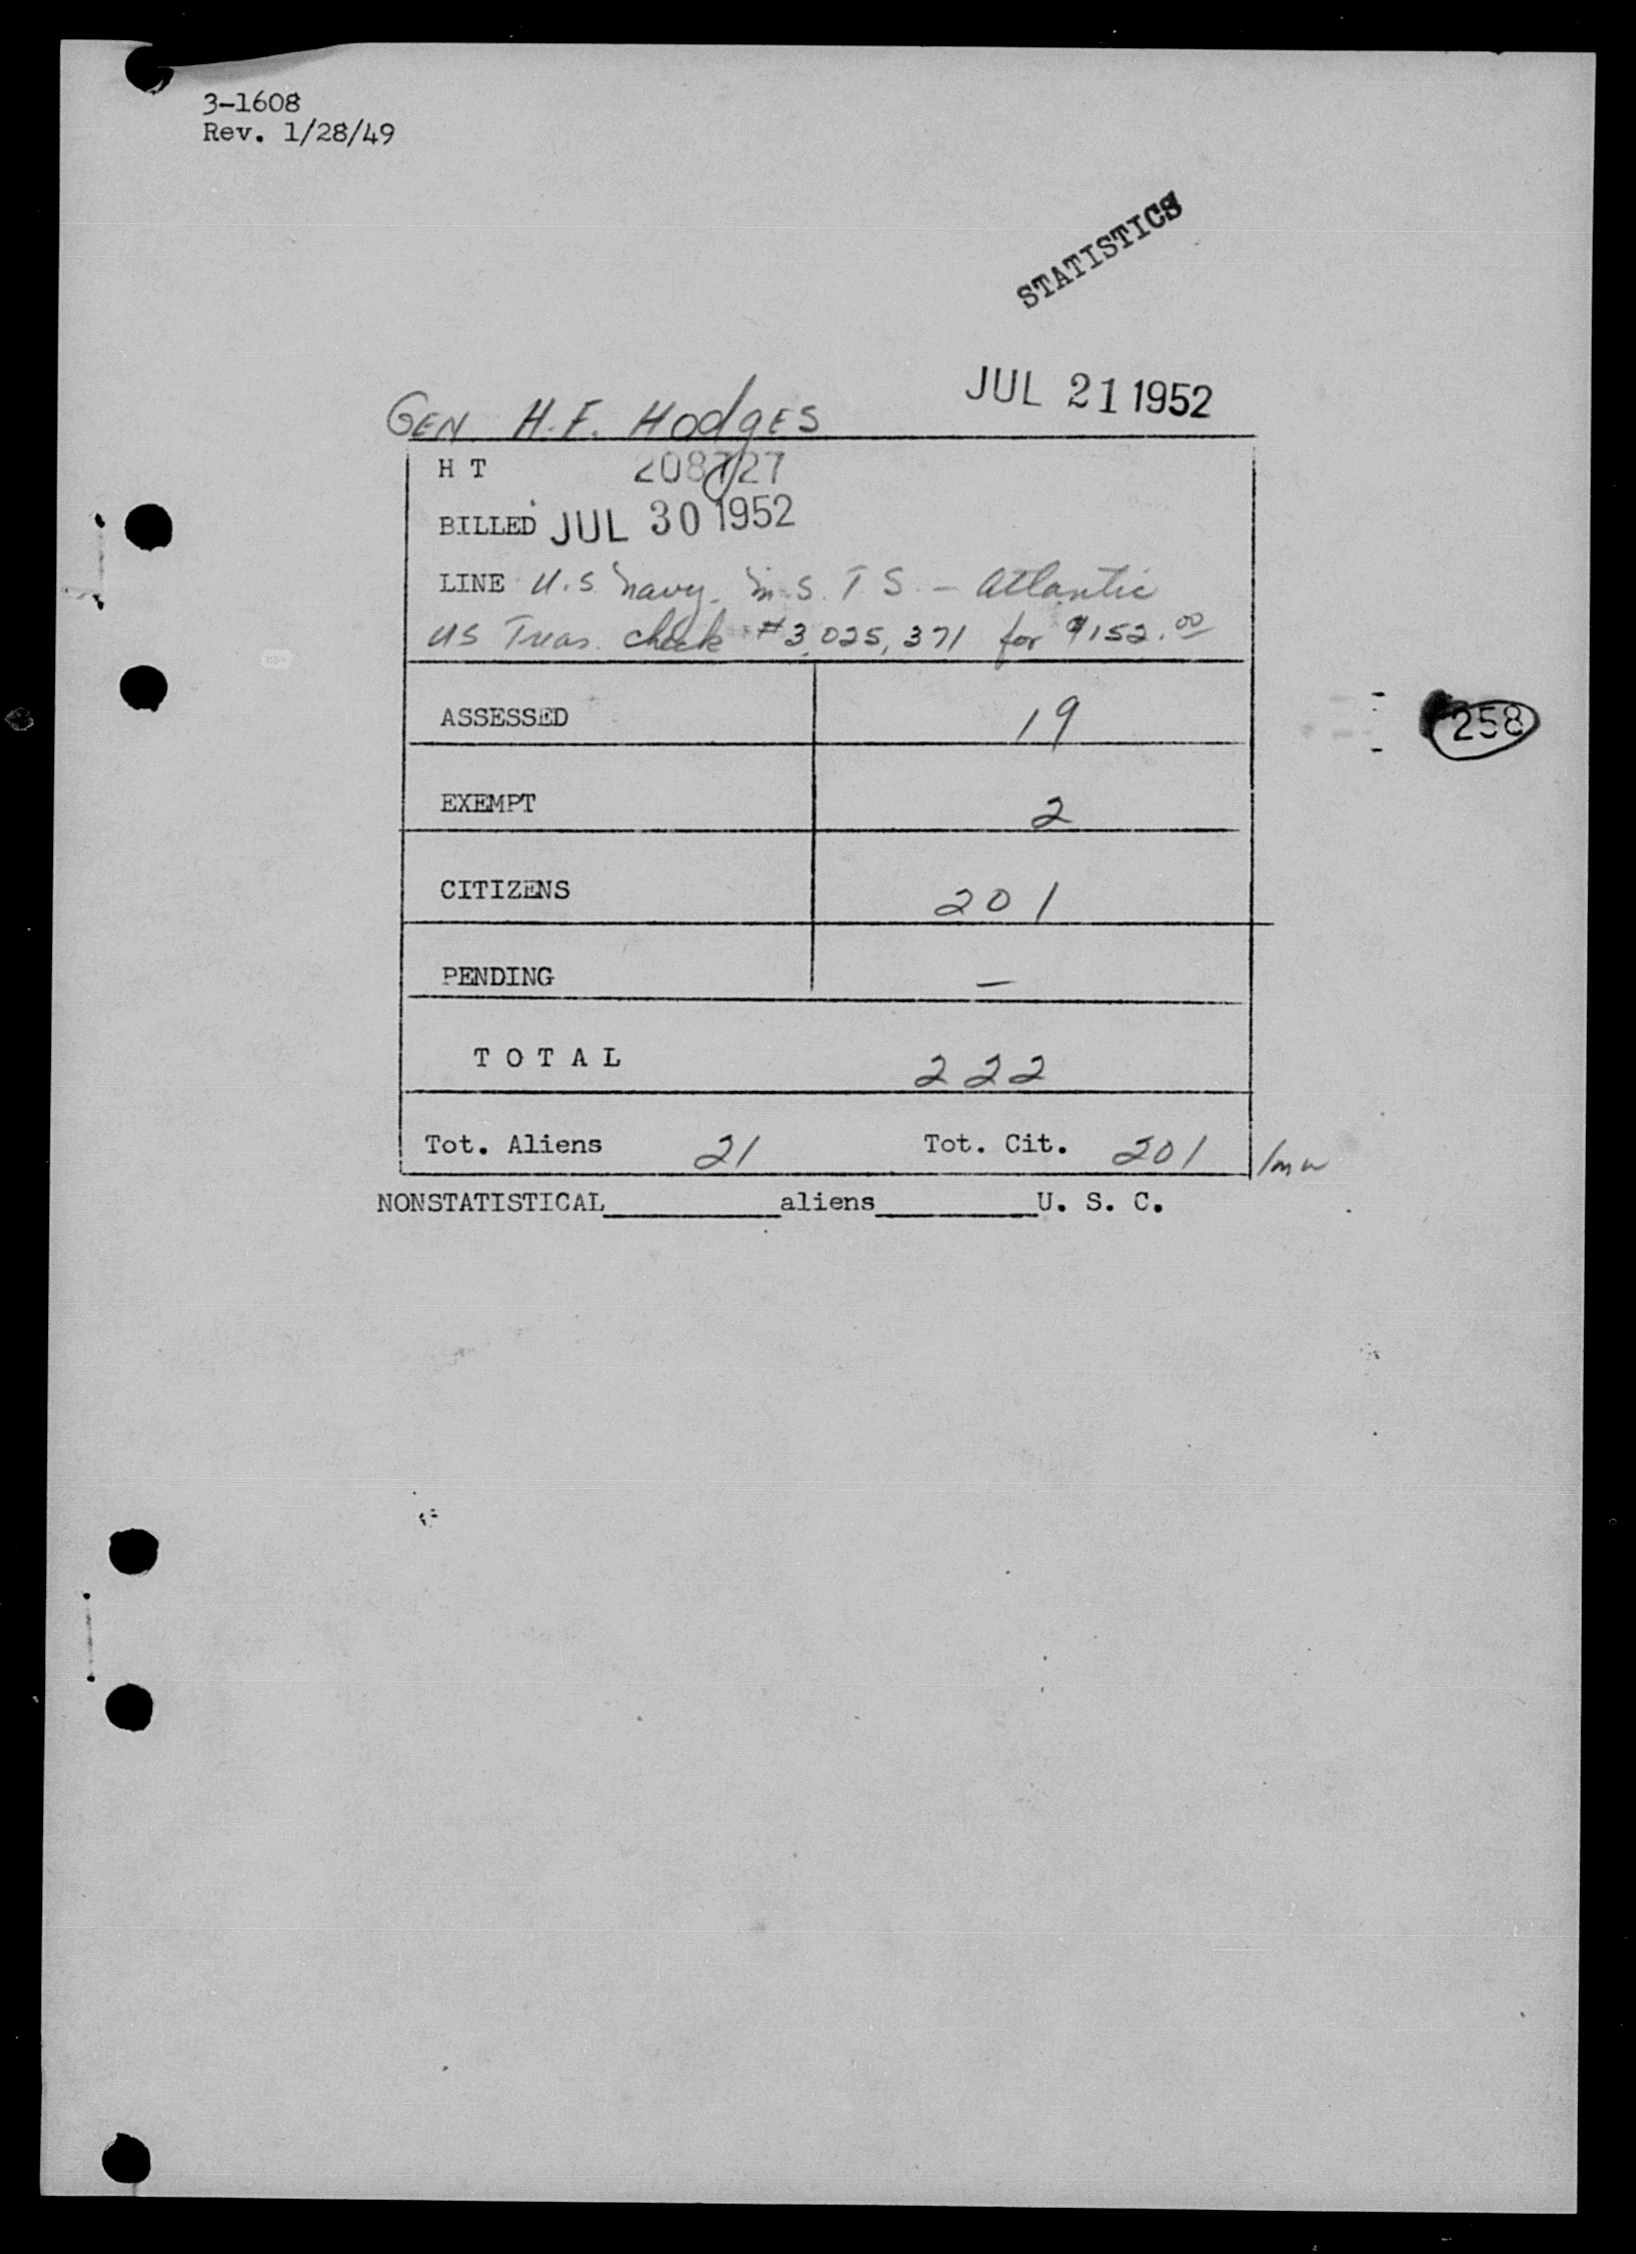 3-1608
Rev. 1/28/49
STATISTICS
JUL 21 1952
GEN H.F. HodgES
H T 208727
BILLED JUL 30 1952
LINE U.S. Navy. M.S.T.S. - Atlantic
US Treas. check #3,025,371 for $152.00
ASSESSED 19
258
EXEMPT 2
CITIZENS 201
PENDING —
T O T A L 222
Tot. Aliens 21 Tot. Cit. 201
NONSTATISTICAL__________aliens__________U. S. C.